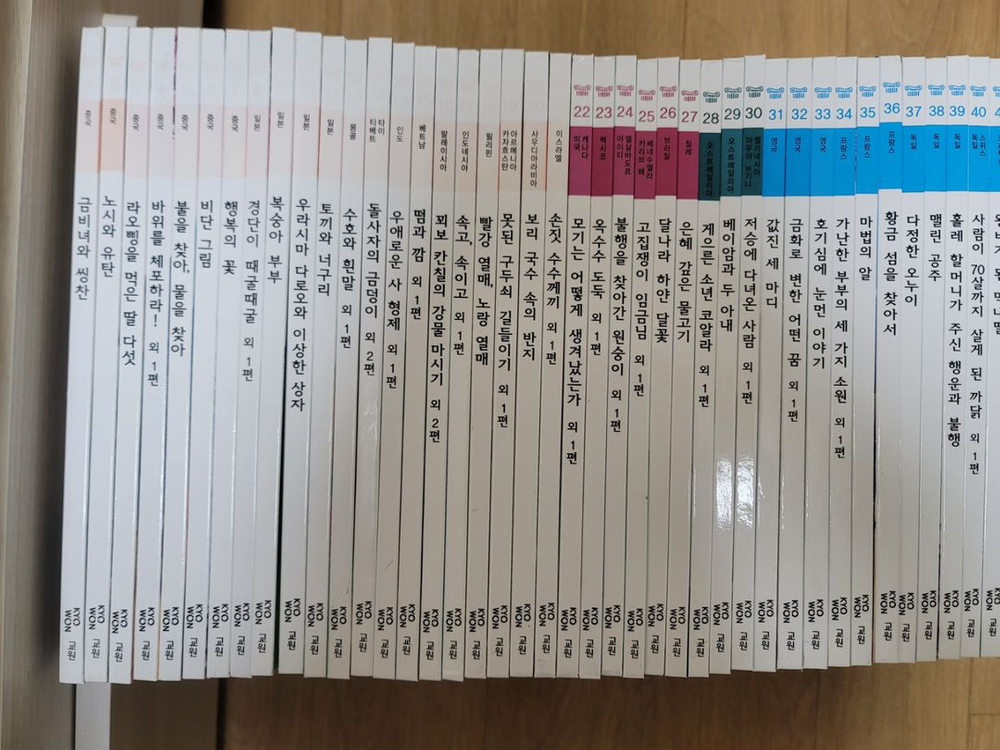 중국
금비녀와 찡찬
KYO WON 교원
중국
노시와 유탄
KYO WON 교원
중국
라오삥을 먹은 딸 다섯
KYO WON 교원
중국
바위를 체포하라! 외 1편
KYO WON 교원
중국
불을 찾아, 물을 찾아
KYO WON 교원
중국
비단 그림
KYO WON 교원
중국
행복의 꽃
KYO WON 교원
일본
경단이 때굴때굴 외 1편
KYO WON 교원
일본
복숭아 부부
KYO WON 교원
일본
우라시마 다로오와 이상한 상자
KYO WON 교원
일본
토끼와 너구리
KYO WON 교원
몽골
수호와 흰말 외 1편
KYO WON 교원
타이
티베트
돌사자의 금덩이 외 2편
KYO WON 교원
인도
우애로운 사 형제 외 1편
KYO WON 교원
베트남
떰과 깜 외 1편
KYO WON 교원
말레이시아
꾀보 칸칠의 강물 마시기 외 2편
KYO WON 교원
인도네시아
속고, 속이고 외 1편
KYO WON 교원
필리핀
빨강 열매, 노랑 열매
KYO WON 교원
아르메니아
카자흐스탄
못된 구두쇠 길들이기 외 1편
KYO WON 교원
사우디아라비아
보리 국수 속의 반지
KYO WON 교원
이스라엘
손짓 수수께끼 외 1편
KYO WON 교원
22
캐나다
미국
모기는 어떻게 생겨났는가 외 1편
KYO WON 교원
23
멕시코
옥수수 도둑 외 1편
KYO WON 교원
24
엘살바도르
아이티
불행을 찾아간 원숭이 외 1편
KYO WON 교원
25
베네수엘라
카리브 해
고집쟁이 임금님 외 1편
KYO WON 교원
26
브라질
달나라 하얀 달꽃
KYO WON 교원
27
칠레
은혜 갚은 물고기
KYO WON 교원
28
오스트레일리아
게으른 소년 코알라 외 1편
KYO WON 교원
29
오스트레일리아
베이암과 두 아내
KYO WON 교원
30
멜라네시아
파푸아 뉴기니
저승에 다녀온 사람 외 1편
KYO WON 교원
31
영국
값진 세 마디
KYO WON 교원
32
영국
금화로 변한 어떤 꿈 외 1편
KYO WON 교원
33
영국
호기심에 눈먼 이야기
KYO WON 교원
34
프랑스
가난한 부부의 세 가지 소원 외 1편
KYO WON 교원
35
프랑스
마법의 알
KYO WON 교원
36
프랑스
황금 섬을 찾아서
KYO WON 교원
37
독일
다정한 오누이
KYO WON 교원
38
독일
맬린 공주
KYO WON 교원
39
독일
홀레 할머니가 주신 행운과 불행
KYO WON 교원
40
스위스
독일
사람이 70살까지 살게 된 까닭 외 1편
KYO WON 교원